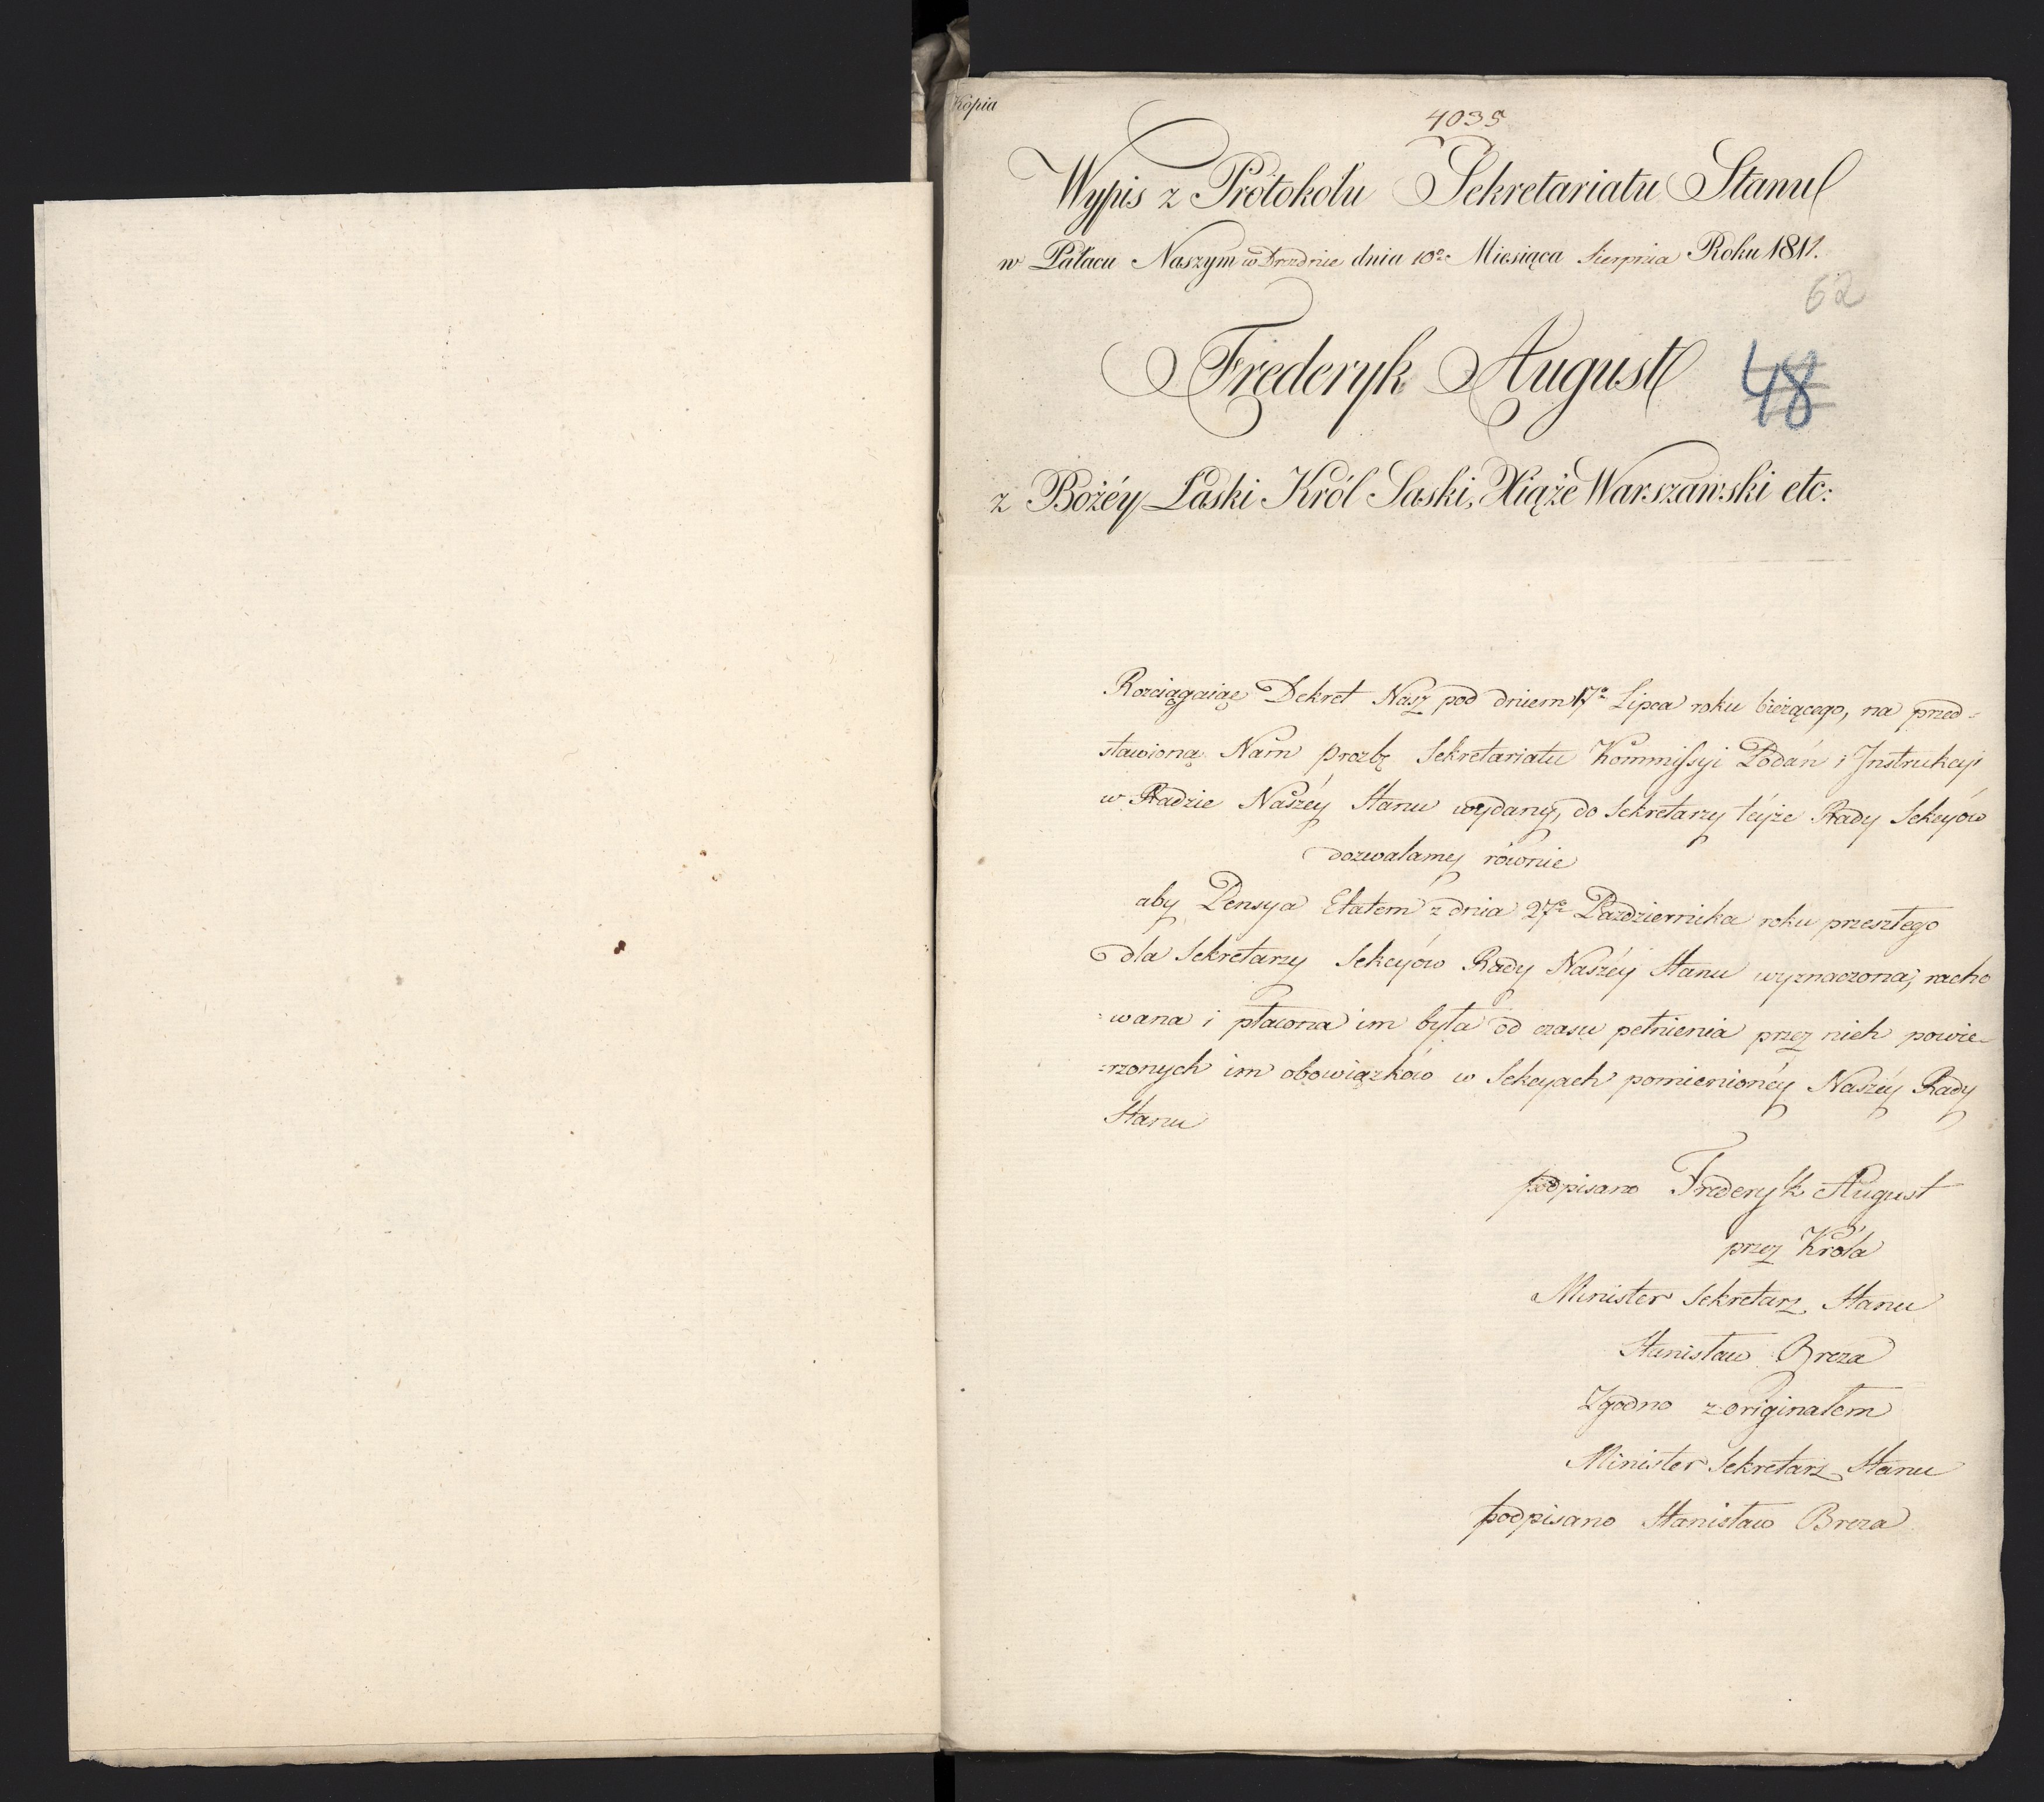 Kopia
4035
Wypis z Protokołu Sekretariatu Stanu
w Pałacu Naszym w Dreźnie dnia 10º Miesiąca Sierpnia Roku 1811.
62
Frederyk August
48
z Bożéy Łaski Król Saski, Xiąże Warszawski etc:
Rozciągaiąc Dekret Nasz pod dniem 17º Lipca roku bieżącego, na przed-
stawioną Nam prozbę Sekretariatu Kommissyi Podań i Instrukcyi
w Radzie Naszéy Stanu wydany, do Sekretarzy téyże Rady Sekcyów
dozwalamy równie
aby Pensya Etatem z dnia 27º Pazdziernika roku przeszłego
dla Sekretarzy Sekcyów Rady Naszéy Stanu wyznaczona, racho
-wana i płacona im była od czasu pełnienia przez nich powie-
-rzonych im obowiązków w Sekcyach pomienionéy Naszéy Rady
Stanu
podpisano Frederyk August
przez Króla
Minister Sekretarz Stanu
Stanisław Breza
Zgodno z originałem
Minister Sekretarz Stanu
podpisano Stanisław Breza